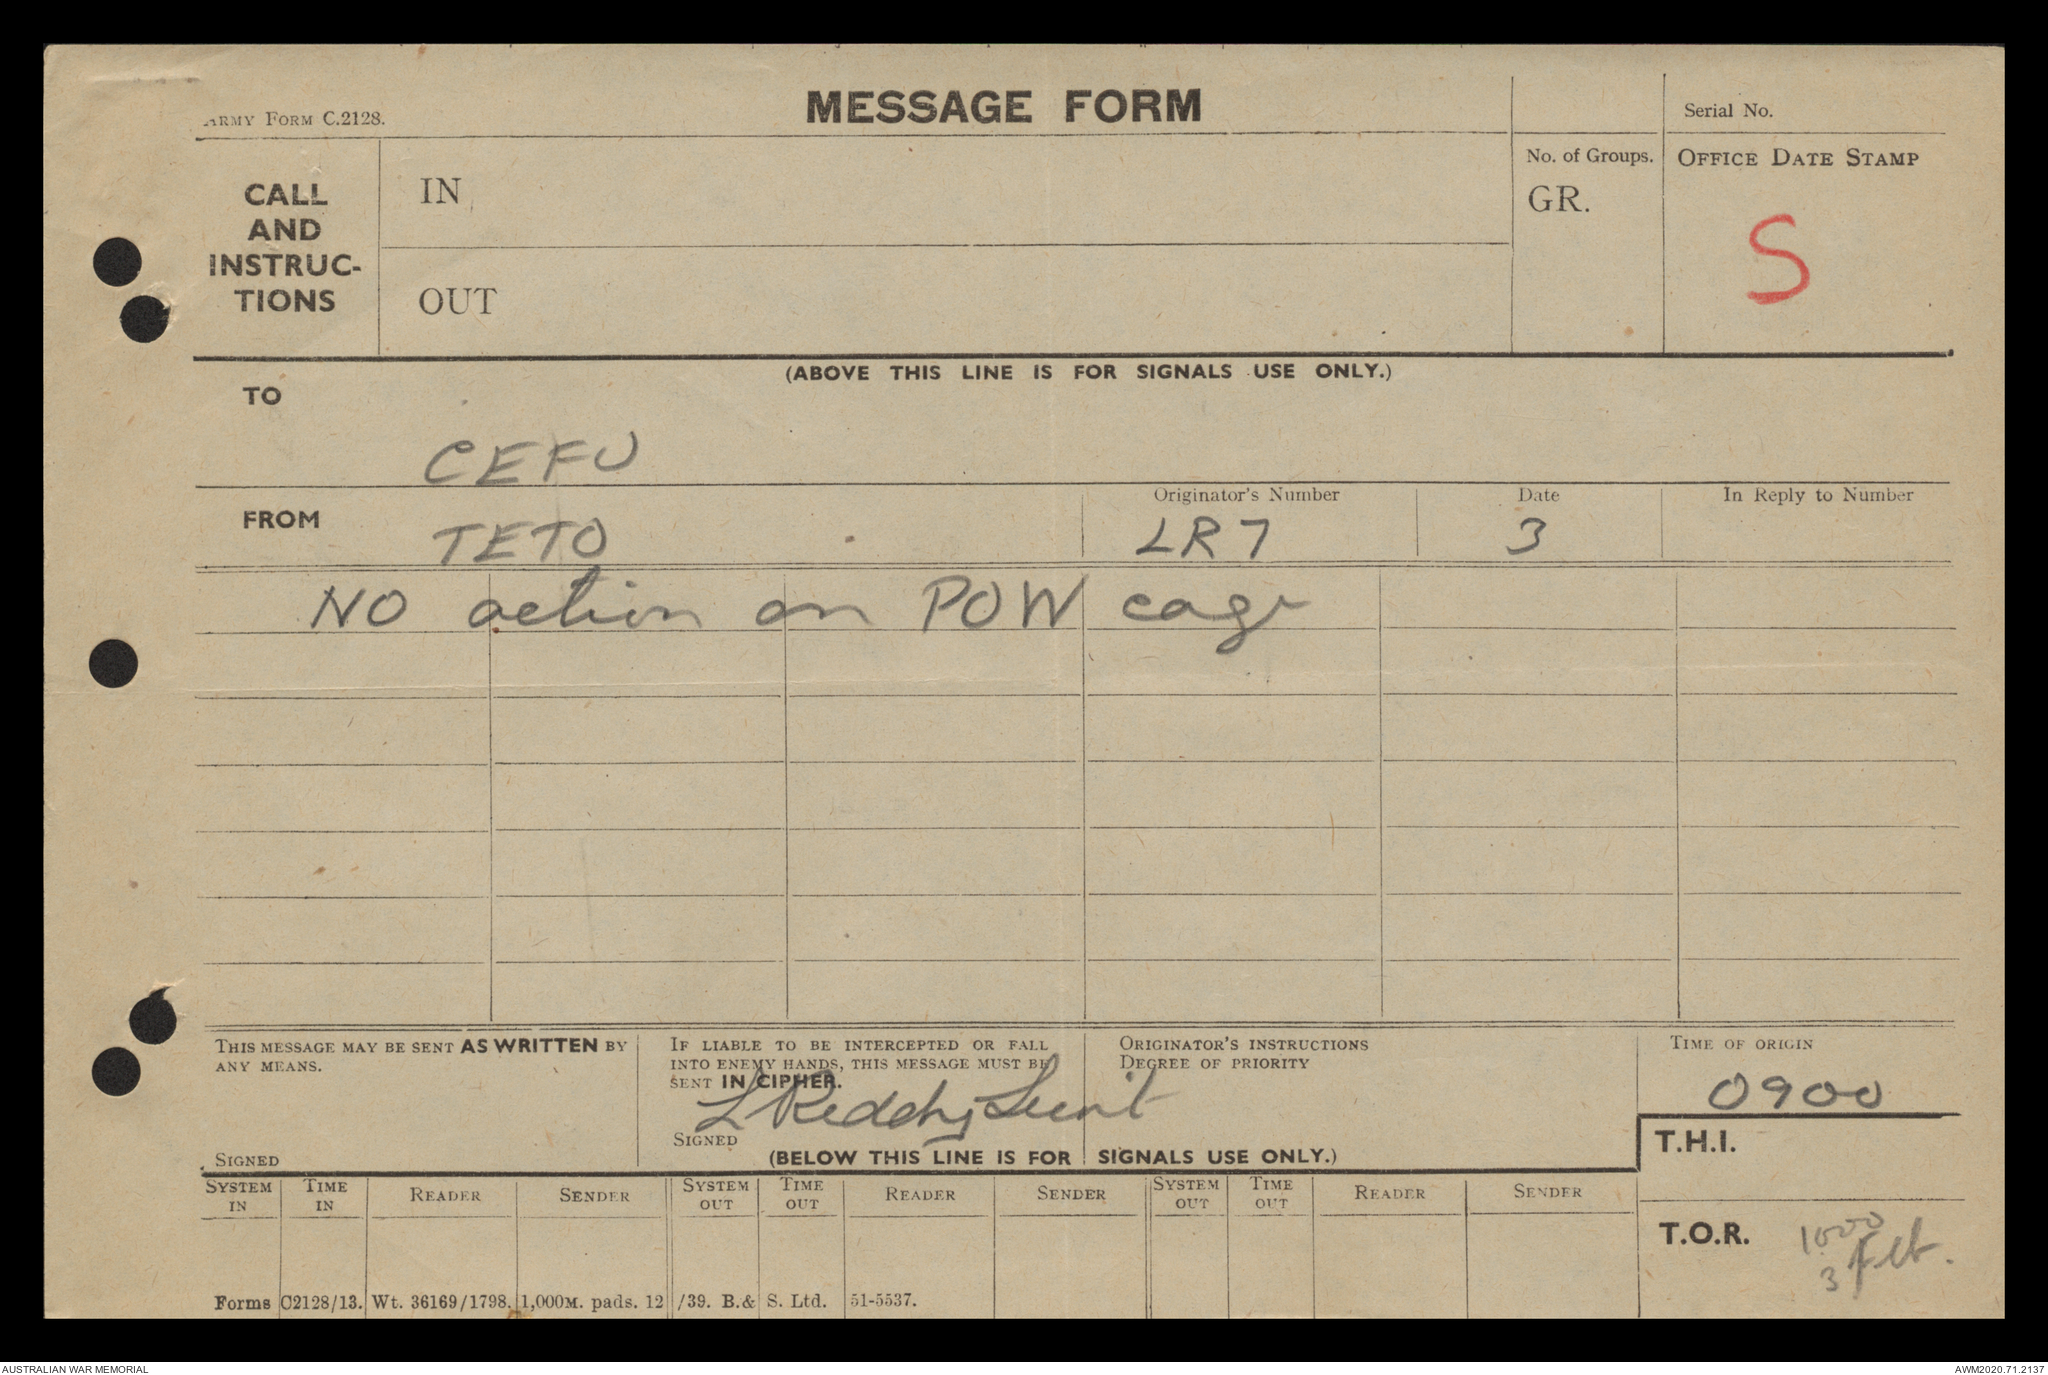 ARMY FORM C.2128.
MESSAGE FORM
Serial No.
CALL
AND
INSTRUC-
TIONS
IN
OUT
No. of Groups.
GR.
OFFICE DATE STAMP
S
(ABOVE THIS LINE IS FOR SIGNALS USE ONLY.)
TO
CEFU
FROM
TETO
Originator's Number
LR7
Date
3
In Reply to Number
NO action on POW cage
THIS MESSAGE MAY BE SENT AS WRITTEN BY
ANY MEANS.
SIGNED
IF LIABLE TO BE INTERCEPTED OR FALL
INTO ENEMY HANDS, THIS MESSAGE MUST BE
SENT IN CIPHER.
L Reddy Lieut
SIGNED
ORIGINATOR'S INSTRUCTIONS
DEGREE OF PRIORITY
TIME OF ORIGIN
0900
(BELOW THIS LINE IS FOR SIGNALS USE ONLY.)
T.H.I.
SYSTEM IN TIME IN READER SENDER SYSTEM OUT TIME OUT READER SENDER SYSTEM OUT TIME OUT READER SENDER
T.O.R.
1000
3 Feb.
Forms C2128/13. Wt. 36169/1798. 1,000M. pads. 12/39. B.& S. Ltd. 51-5537.
AUSTRALIAN WAR MEMORIAL
AWM2020.71.2137